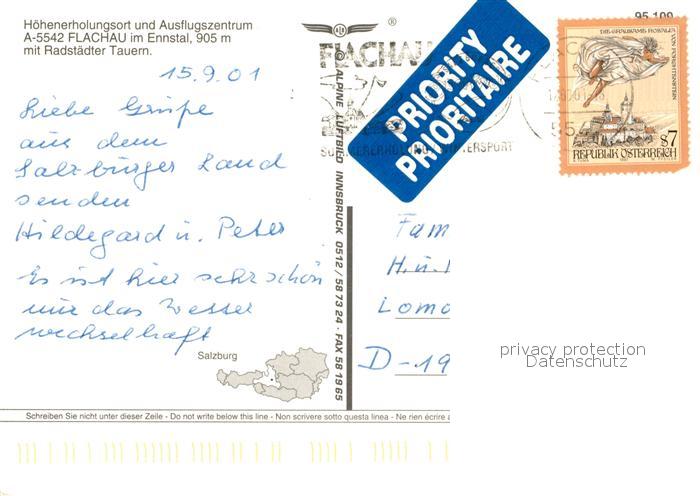 Höhenerholungsort und Ausflugszentrum
A-5542 FLACHAU im Ennstal, 905 m
mit Radstädter Tauern.
15.9.01
Liebe Grüße
aus dem
Salzburger Land
senden
Hildegard u. Peter
Es ist hier sehr schön
nur das Wetter
wechselhaft
Salzburg
Schreiben Sie nicht unter dieser Zeile - Do not write below this line - Non scrivere sotto questa linea - Ne rien écrire
ALPINE LUFTBILD INNSBRUCK 0512 / 58 73 24 · FAX 58 19 65
®
FLACHAU
SOMMERERHOLUNG WINTERSPORT
PRIORITY
PRIORITAIRE
95 109
DIE GRAUSAME ROSALIA
VON FORCHTENSTEIN
S7
REPUBLIK ÖSTERREICH
55
Fam
H. u.
Lomo
D-19
privacy protection
Datenschutz